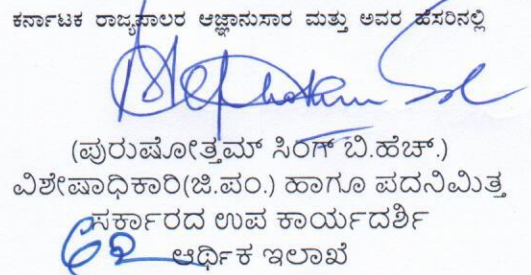 ಕರ್ನಾಟಕ ರಾಜ್ಯಪಾಲರ ಆಜ್ಞಾನುಸಾರ ಮತ್ತು ಅವರ ಹೆಸರಿನಲ್ಲಿ
(ಪುರುಷೋತ್ತಮ್ ಸಿಂಗ್ ಬಿ.ಹೆಚ್.)
ವಿಶೇಷಾಧಿಕಾರಿ(ಜಿ.ಪಂ.) ಹಾಗೂ ಪದನಿಮಿತ್ತ
ಸರ್ಕಾರದ ಉಪ ಕಾರ್ಯದರ್ಶಿ
ಆರ್ಥಿಕ ಇಲಾಖೆ